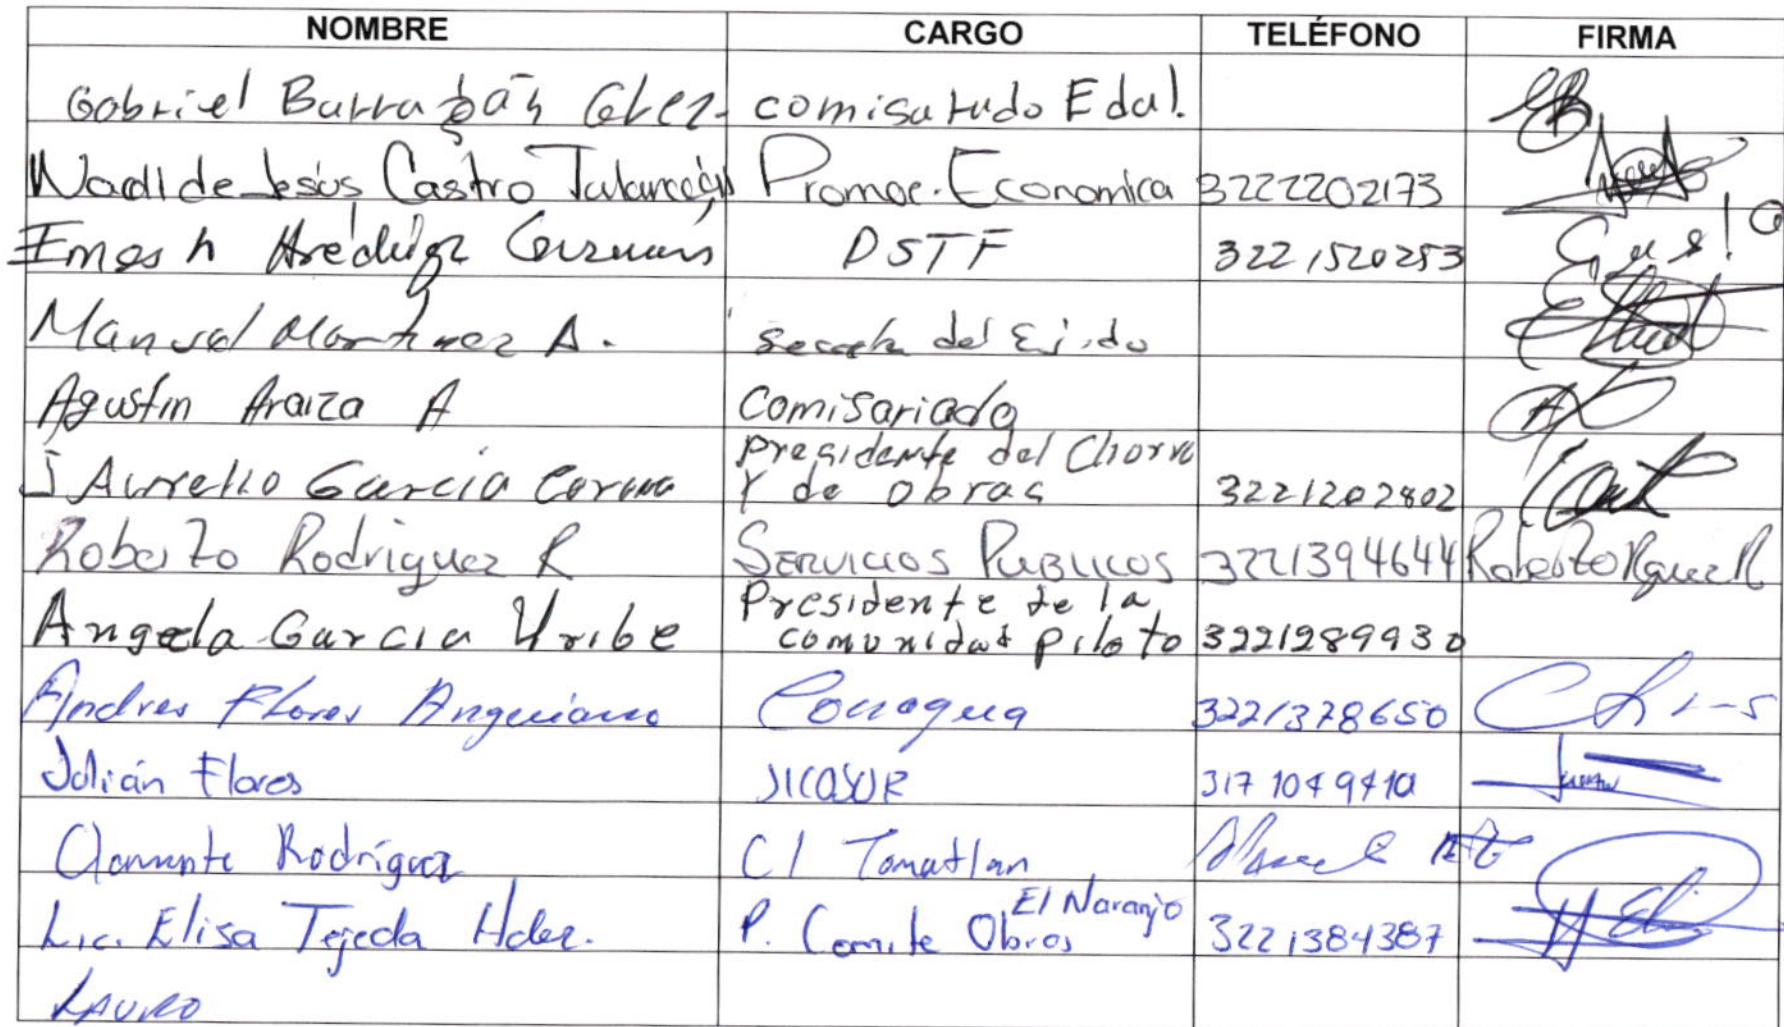 NOMBRE CARGO TELÉFONO FIRMA
Gabriel Barragán Glez. comisariado Edal.
Wadi de Jesús Castro Promoc. Economica 3222202173
DSTF 3221520253
Manuel Martinez A. del Ejido
Agustin Araiza A Comisariado
J Aurelio Garcia Presidente del Chorro
Y de obras 3221202802
Roberto Rodriguez R Servicios Publicos 3221394644 Roberto Rguez R
Angela Garcia Uribe Presidente de la
comunidad piloto 3221289930
Andres Flores Anguiano Conagua 3221378650
Julián Flores JICOSUR 317 1049410
Clemente Rodríguez C/ Tomatlan
Lic. Elisa Tejeda Hdez. P. Comite Obras El Naranjo 3221384387
LAURO